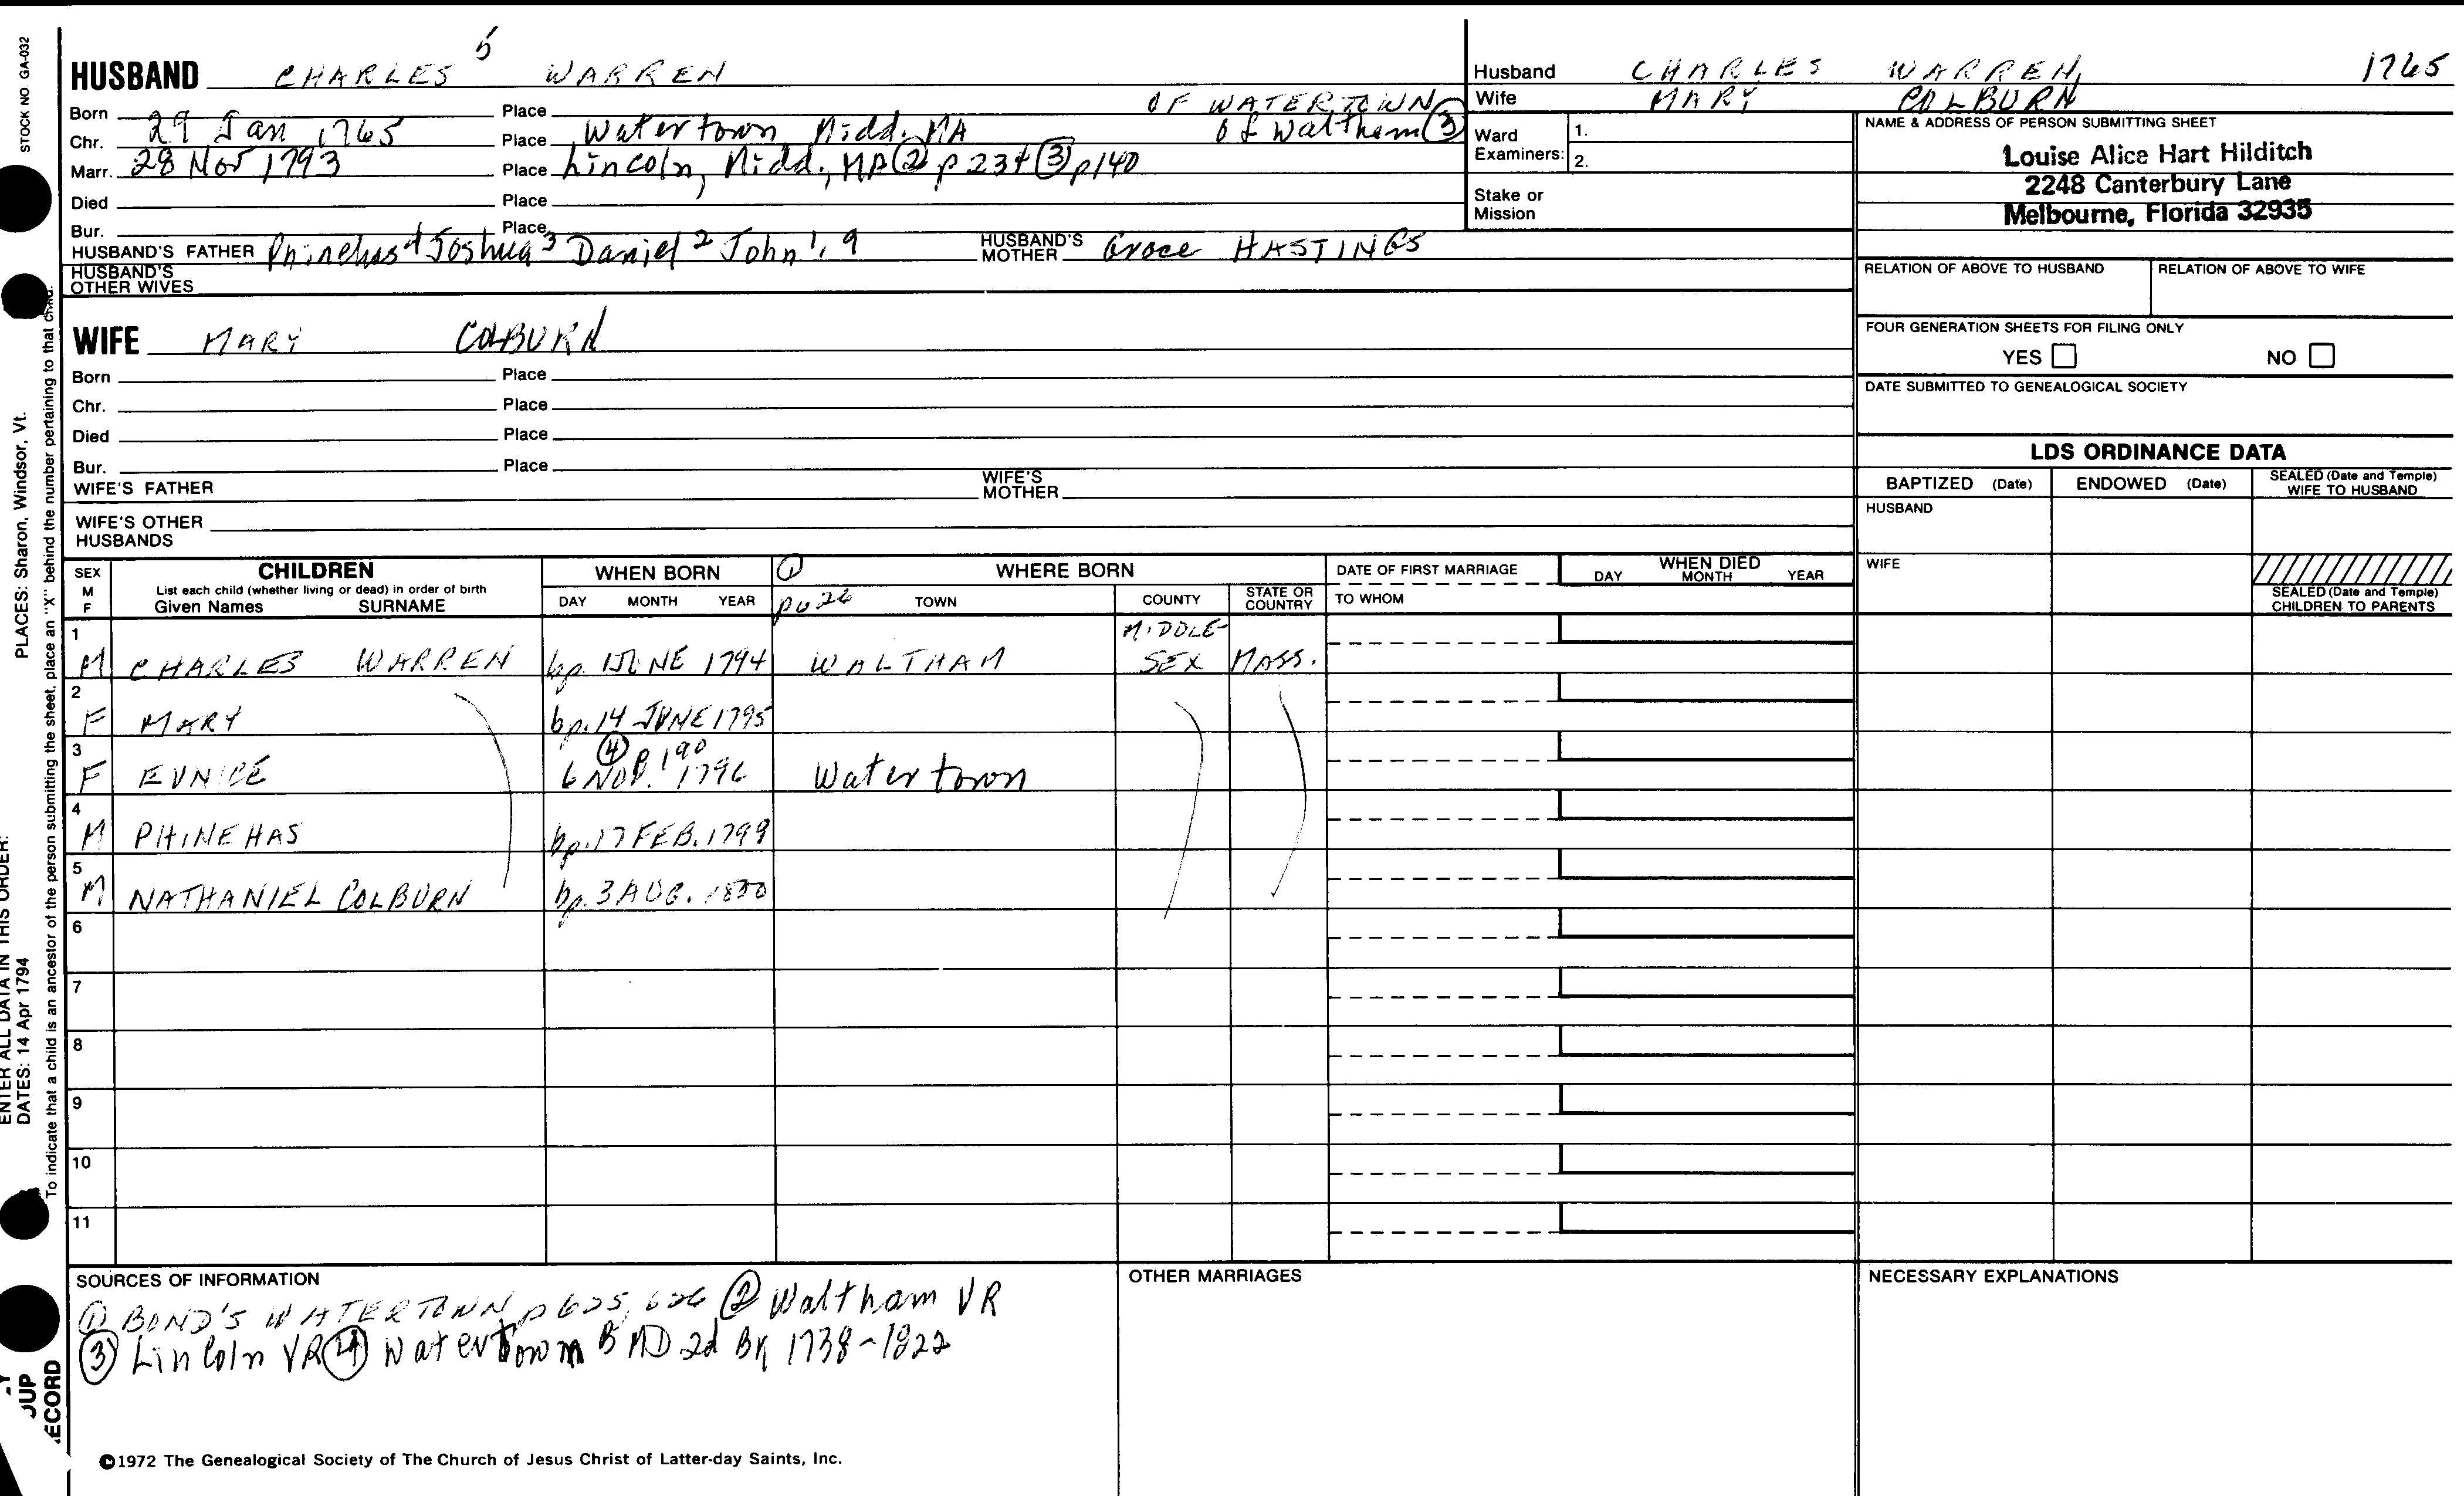 STOCK NO GA-032
PLACES: Sharon, Windsor, Vt.
ENTER ALL DATA IN THIS ORDER:
DATES: 14 Apr 1794
To indicate that a child is an ancestor of the person submitting the sheet, place an "X" behind the number pertaining to that child.
HUSBAND CHARLES 5 WARREN
Born Place OF WATERTOWN
Chr. 29 Jan 1765 Place Watertown Midd. MA of Waltham ③
Marr. 28 Nov 1793 Place Lincoln, Midd., MA ② p 234 ③ p140
Died Place
Bur. Place
HUSBAND'S FATHER Phinehas 4 Joshua 3 Daniel 2 John 1, 9 HUSBAND'S MOTHER Grace HASTINGS
HUSBAND'S OTHER WIVES
Husband CHARLES WARREN, 1765
Wife MARY COLBURN
Ward Examiners: 1.
2.
Stake or Mission
NAME & ADDRESS OF PERSON SUBMITTING SHEET
Louise Alice Hart Hilditch
2248 Canterbury Lane
Melbourne, Florida 32935
RELATION OF ABOVE TO HUSBAND RELATION OF ABOVE TO WIFE
FOUR GENERATION SHEETS FOR FILING ONLY
YES NO
DATE SUBMITTED TO GENEALOGICAL SOCIETY
WIFE MARY COLBURN
Born Place
Chr. Place
Died Place
Bur. Place
WIFE'S FATHER WIFE'S MOTHER
WIFE'S OTHER HUSBANDS
LDS ORDINANCE DATA
BAPTIZED (Date) ENDOWED (Date) SEALED (Date and Temple) WIFE TO HUSBAND
HUSBAND
WIFE
SEALED (Date and Temple) CHILDREN TO PARENTS
SEX M F
CHILDREN
List each child (whether living or dead) in order of birth
Given Names SURNAME
WHEN BORN
DAY MONTH YEAR
① WHERE BORN
TOWN COUNTY STATE OR COUNTRY
DATE OF FIRST MARRIAGE
TO WHOM
WHEN DIED
DAY MONTH YEAR
1 M CHARLES WARREN bp. 1 JUNE 1794 WALTHAM MIDDLE-SEX MASS.
2 F MARY bp. 14 JUNE 1795
3 F EUNICE ④ p 190 6 NOV. 1796 Watertown
4 M PHINEHAS bp. 17 FEB. 1799
5 M NATHANIEL COLBURN bp. 3 AUG. 1800
6
7
8
9
10
11
SOURCES OF INFORMATION
① BOND'S WATERTOWN p 625, 626 ② Waltham VR
③ Lincoln VR ④ Watertown BMD 2d Bk 1738-1822
OTHER MARRIAGES
NECESSARY EXPLANATIONS
©1972 The Genealogical Society of The Church of Jesus Christ of Latter-day Saints, Inc.